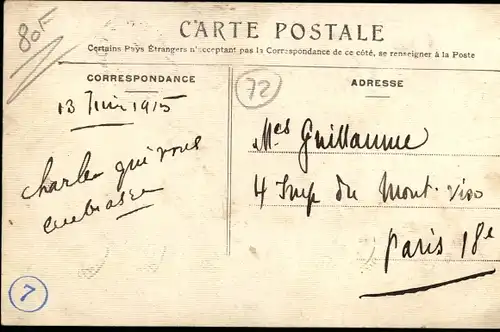 80F
CARTE POSTALE
Certains Pays Étrangers n'acceptant pas la Correspondance de ce côté, se renseigner à la Poste
CORRESPONDANCE
13 Juin 1915
Charles qui vous
embrasse
7
72
ADRESSE
Mes Guillaume
4 Imp du Mont-Viso
Paris 18e